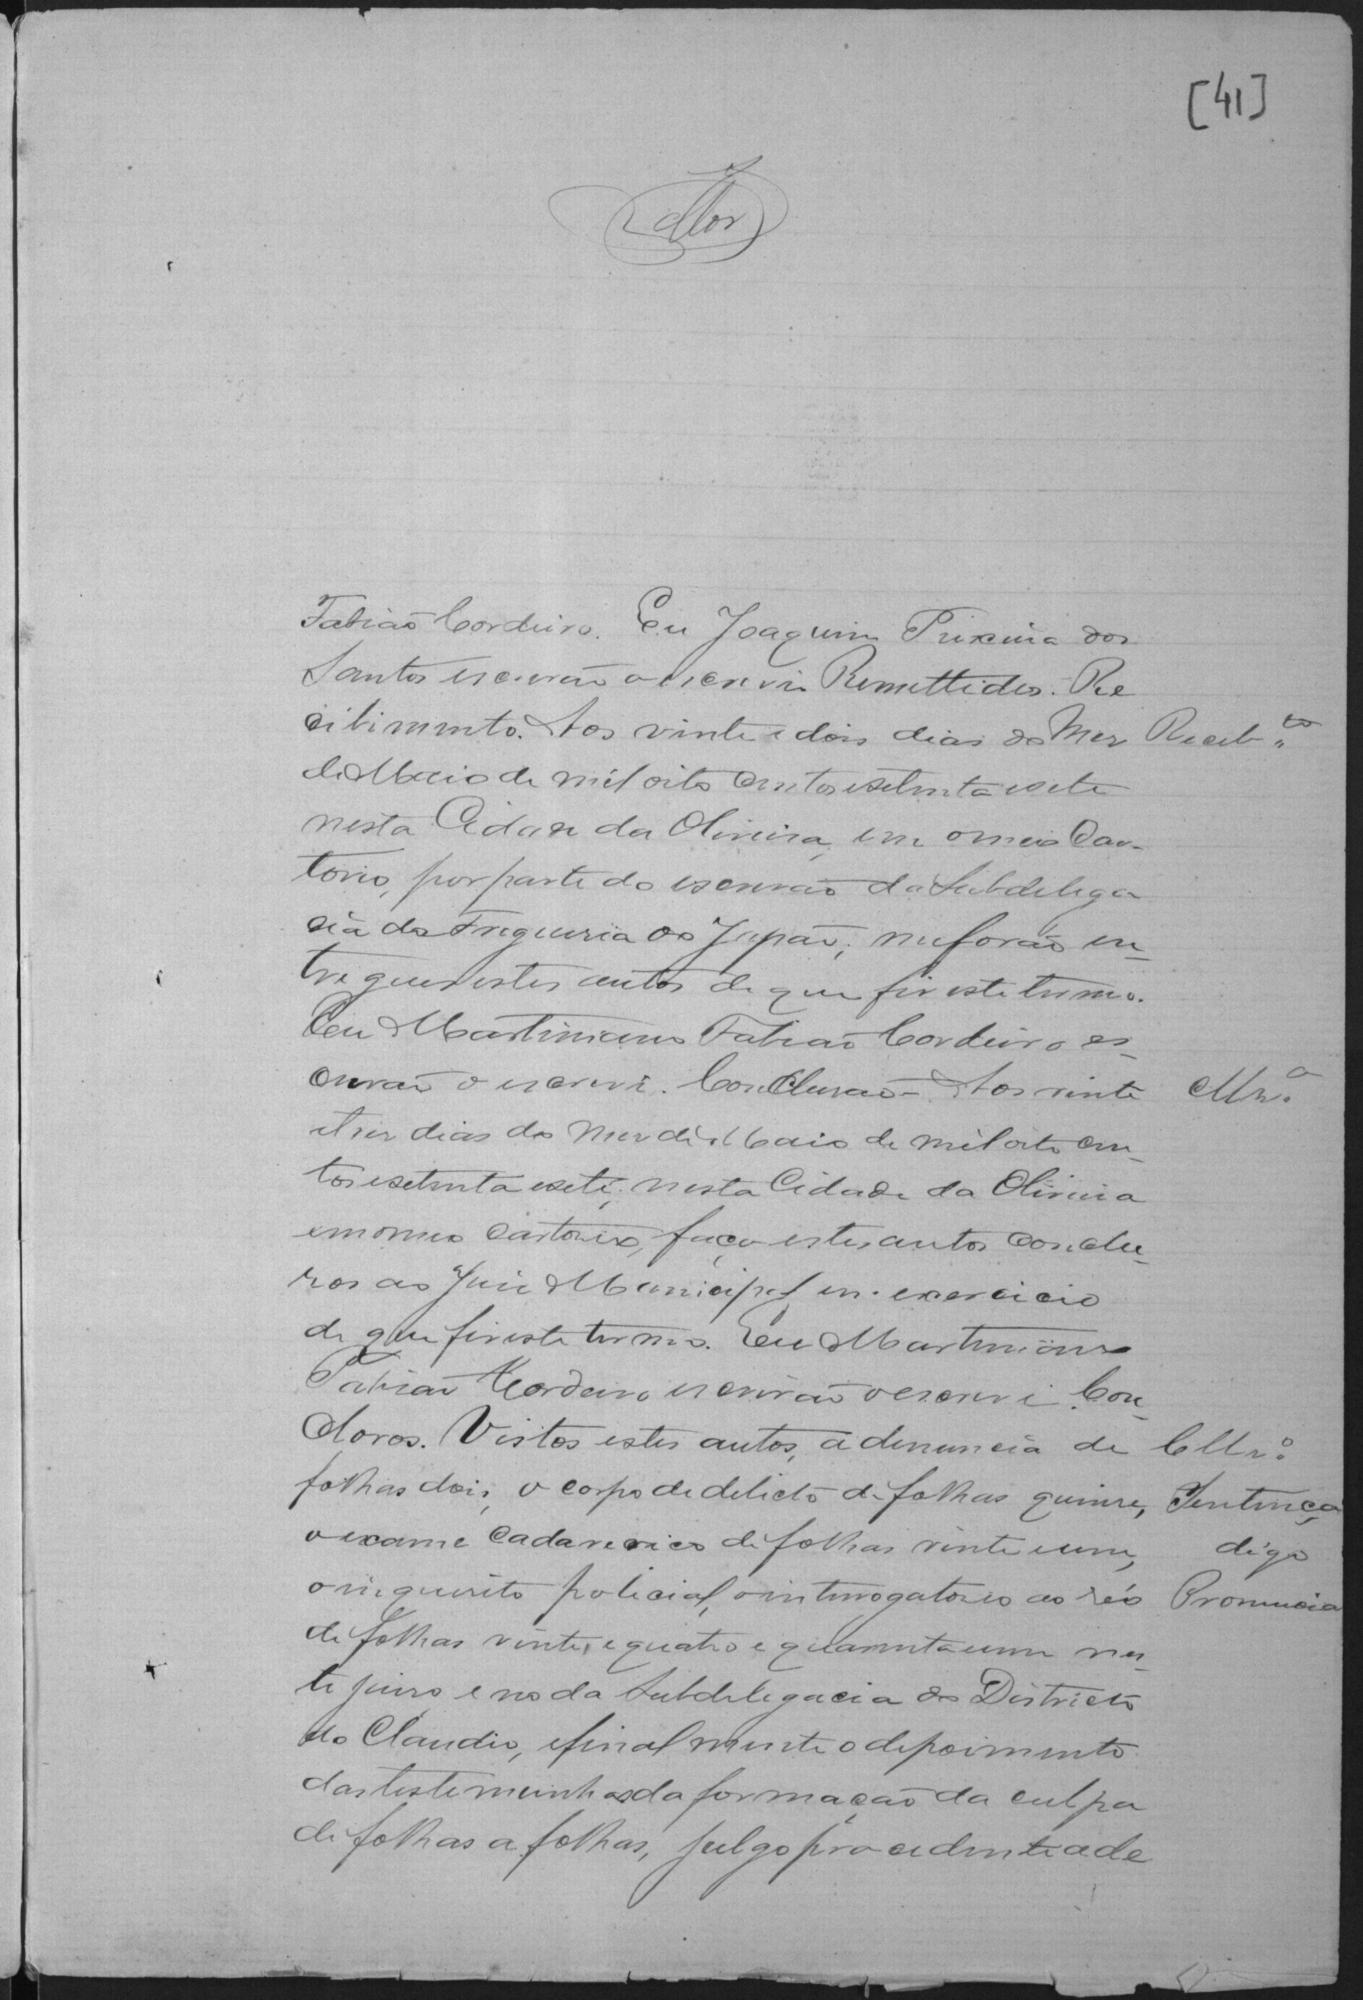 [41]
Fabião Cordeiro. Eu Joaquim Teixeira dos
Santos escrivão o escrevi Remettidos. Re
cibimento. Aos vinte e dois dias do Mez Receb.to
de Maio de mil oito centos e setenta e sete
nesta Cidade da Oliveira, em o meu Car-
torio, por parte do escrivão da Subdelega
cia da Freguezia do Japão, me forão en-
tregues estes autos de que fiz este termo.
Eu Martiniano Fabião Cordeiro es-
crivão o escrevi. Concluzão - Aos vinte
e trez dias do Mez de Maio de mil oito cen-
tos e setenta e sete, nesta Cidade da Oliveira
em o meu cartorio, faço estes autos conclu-
zos ao Juiz Municipal em exercicio
de que fiz este termo. Eu Martiniano
Fabião Cordeiro escrivão o escrevi. Con-
cluzos. Vistos estes autos, a denuncia de
folhas dois, o corpo de delicto de folhas quinze, Sentença
o exame cadaverico de folhas vinte e um, digo
o inquerito policial, o interrogatorio ao réo Pronuncia
de folhas vinte e quatro e quarenta e um nes-
te juizo e no da Subdelegacia do Districto
do Claudio, e finalmente o depoimento
das testemunhas da formação da culpa
de folhas a folhas, julgo procedente a de